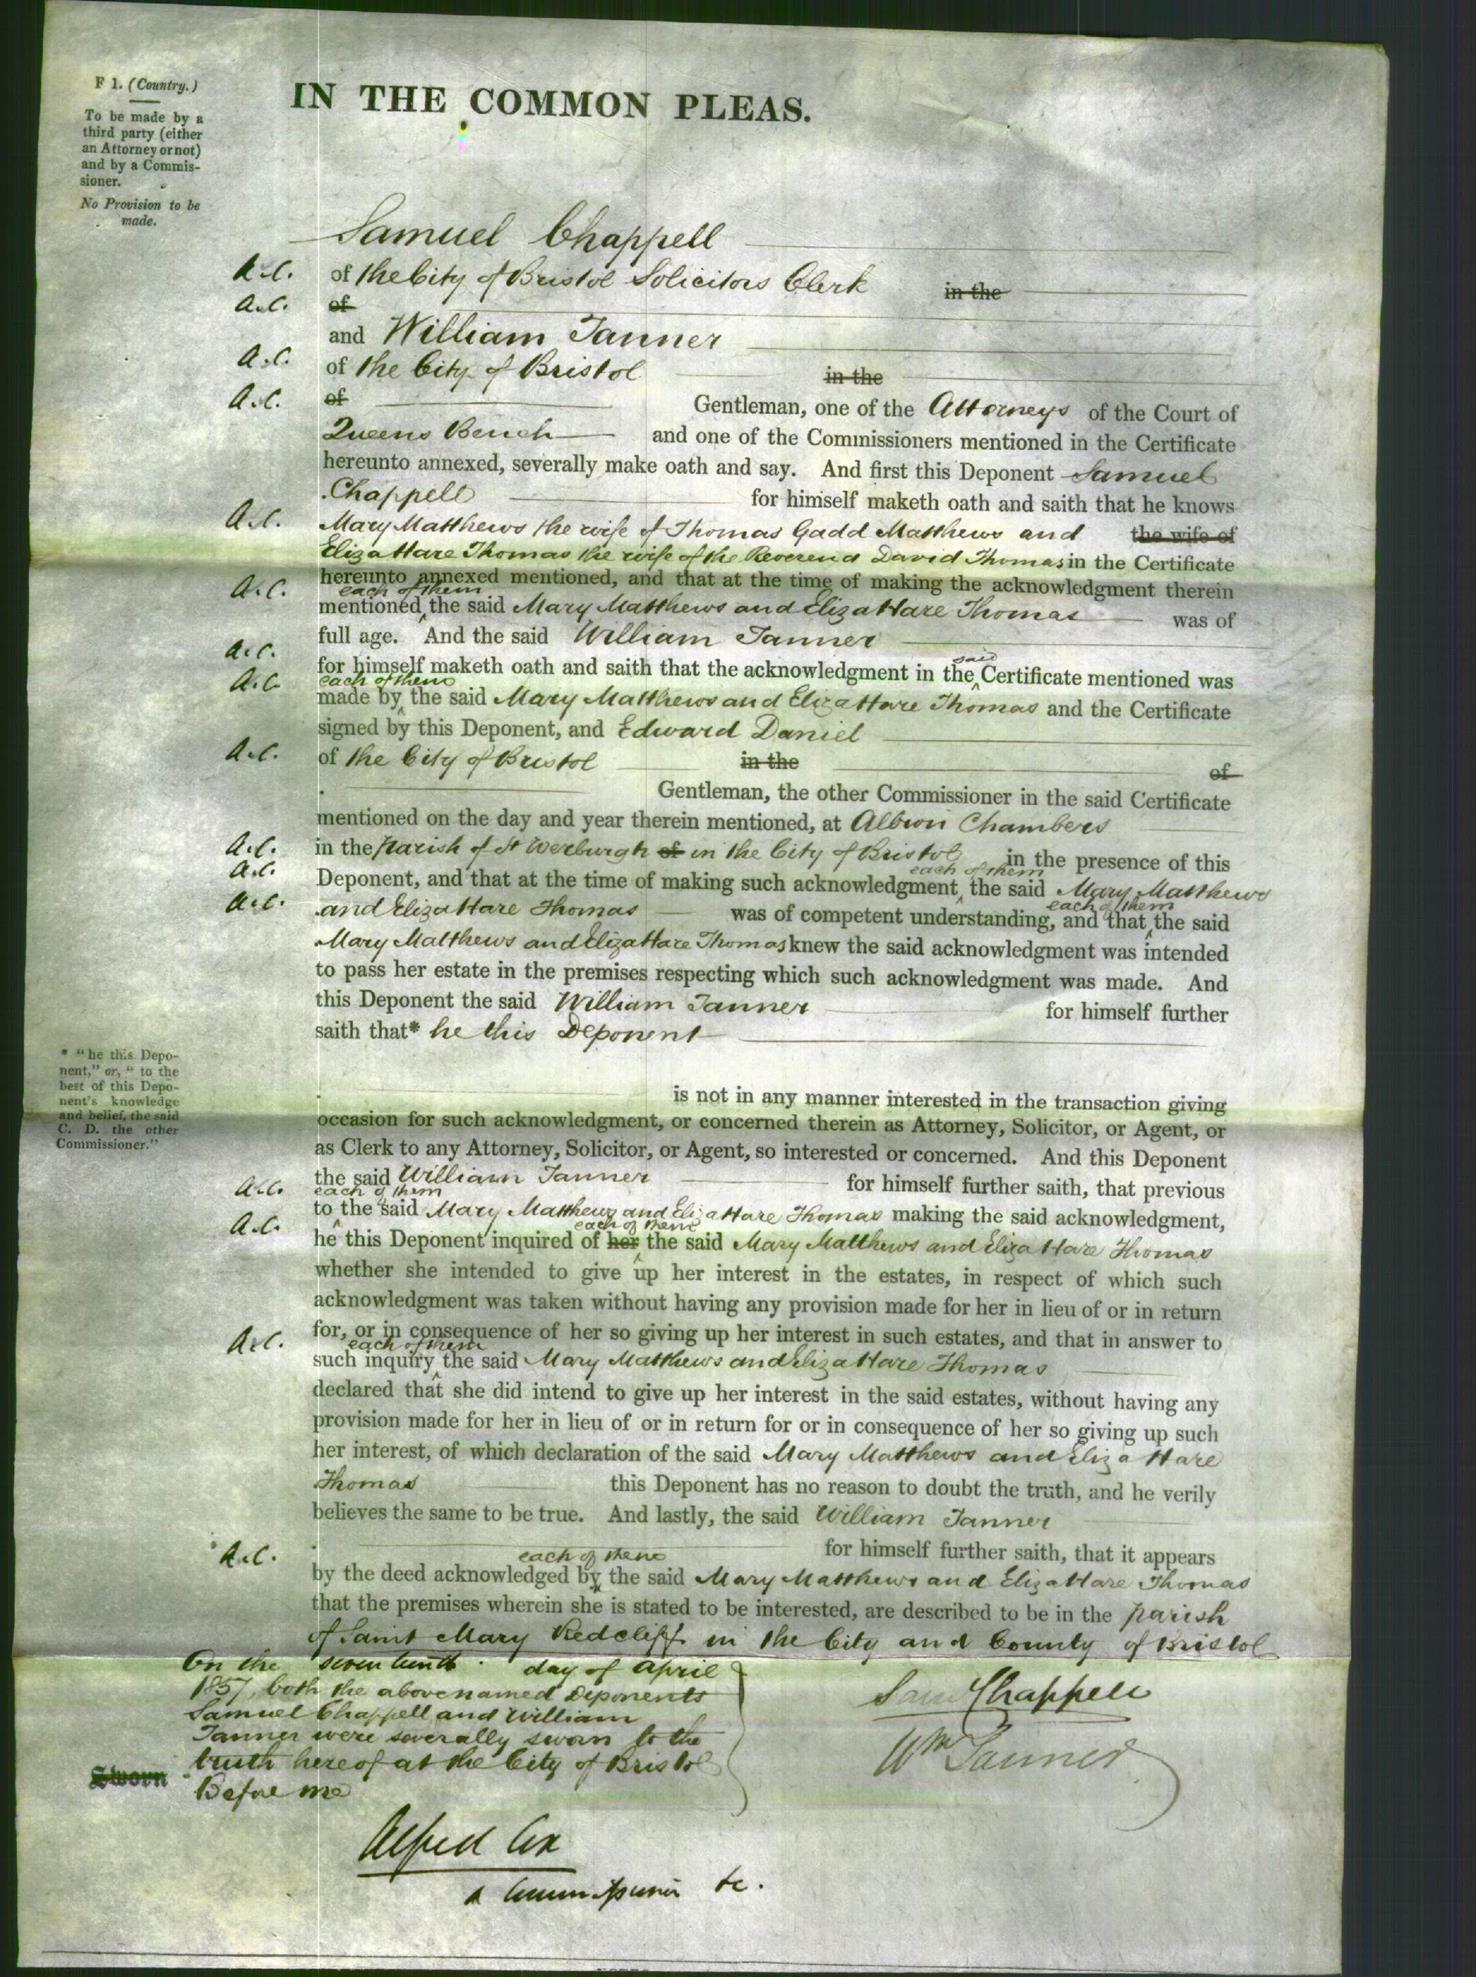 F 1. (Country.)
To be made by a
third party (either
an Attorney or not)
and by a Commis-
sioner.
No Provision to be
made.
IN THE COMMON PLEAS.
Samuel Chappell
A.C. of the City of Bristol Solicitors Clerk in the
A.C. of
and William Tanner
A.C. of the City of Bristol in the
A.C. of Gentleman, one of the Attorneys of the Court of
Queens Bench and one of the Commissioners mentioned in the Certificate
hereunto annexed, severally make oath and say. And first this Deponent Samuel
Chappell for himself maketh oath and saith that he knows
A.C. Mary Matthews the wife of Thomas Gadd Matthews and the wife of
Eliza Hare Thomas the wife of the Reverend David Thomas in the Certificate
hereunto annexed mentioned, and that at the time of making the acknowledgment therein
A.C. each of them
mentioned ‸ the said Mary Matthews and Eliza Hare Thomas was of
full age. And the said William Tanner
A.C. said
for himself maketh oath and saith that the ‸ acknowledgment in the Certificate mentioned was
A.C. each of them
made by ‸ the said Mary Matthews and Eliza Hare Thomas and the Certificate
signed by this Deponent, and Edward Daniel
A.C. of the City of Bristol in the of
Gentleman, the other Commissioner in the said Certificate
mentioned on the day and year therein mentioned, at Albion Chambers
A.C. in the parish of St Werburgh of in the City of Bristol in the presence of this
A.C. each of them
Deponent, and that at the time of making such acknowledgment ‸ the said Mary Matthews
A.C. each of them
and Eliza Hare Thomas was of competent understanding, and that ‸ the said
Mary Matthews and Eliza Hare Thomas knew the said acknowledgment was intended
to pass her estate in the premises respecting which such acknowledgment was made. And
this Deponent the said William Tanner for himself further
saith that* he this Deponent
* "he this Depo-
nent," or, "to the
best of this Depo-
nent's knowledge
and belief, the said
C. D. the other
Commissioner."
is not in any manner interested in the transaction giving
occasion for such acknowledgment, or concerned therein as Attorney, Solicitor, or Agent, or
as Clerk to any Attorney, Solicitor, or Agent, so interested or concerned. And this Deponent
the said William Tanner for himself further saith, that previous
A.C. each of them
to ‸ the said Mary Matthews and Eliza Hare Thomas making the said acknowledgment,
A.C. each of them
he this Deponent inquired of her ‸ the said Mary Matthews and Eliza Hare Thomas
whether she intended to give up her interest in the estates, in respect of which such
acknowledgment was taken without having any provision made for her in lieu of or in return
for, or in consequence of her so giving up her interest in such estates, and that in answer to
A.C. each of them
such inquiry ‸ the said Mary Matthews and Eliza Hare Thomas
declared that she did intend to give up her interest in the said estates, without having any
provision made for her in lieu of or in return for or in consequence of her so giving up such
her interest, of which declaration of the said Mary Matthews and Eliza Hare
Thomas this Deponent has no reason to doubt the truth, and he verily
believes the same to be true. And lastly, the said William Tanner
for himself further saith, that it appears
A.C. each of them
by the deed acknowledged by ‸ the said Mary Matthews and Eliza Hare Thomas
that the premises wherein she is stated to be interested, are described to be in the parish
of Saint Mary Redcliff in the City and County of Bristol
On the seventeenth day of April
1857, both the abovenamed Deponents
Samuel Chappell and William
Tanner were severally sworn to the
truth hereof at the City of Bristol
Sworn Before me
Saml Chappell
Wm Tanner
Alfred Cox
a Commissioner &c.